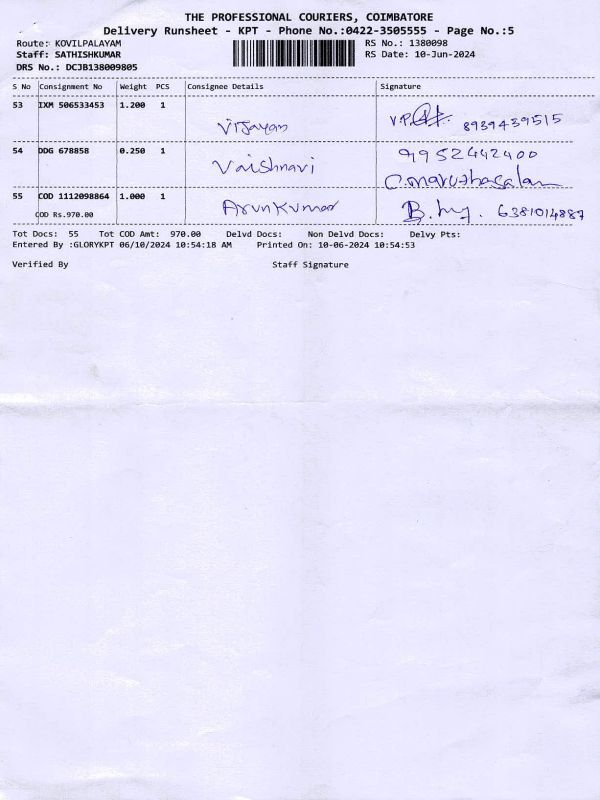 THE PROFESSIONAL COURIERS, COIMBATORE
Delivery Runsheet - KPT - Phone No.:0422-3505555 - Page No.:5
Route: KOVILPALAYAM RS No.: 1380098
Staff: SATHISHKUMAR RS Date: 10-Jun-2024
DRS No.: DCJB138009805
S No Consignment No Weight PCS Consignee Details Signature
53 IXM 506533453 1.200 1 Vijayan V.P. 8939439515
54 DDG 678858 0.250 1 Vaishnavi 9952442400
C.maruthasalam
55 COD 1112098864 1.000 1 ArunKumar B. 6381014887
COD Rs.970.00
Tot Docs: 55 Tot COD Amt: 970.00 Delvd Docs: Non Delvd Docs: Delvy Pts:
Entered By :GLORYKPT 06/10/2024 10:54:18 AM Printed On: 10-06-2024 10:54:53
Verified By Staff Signature